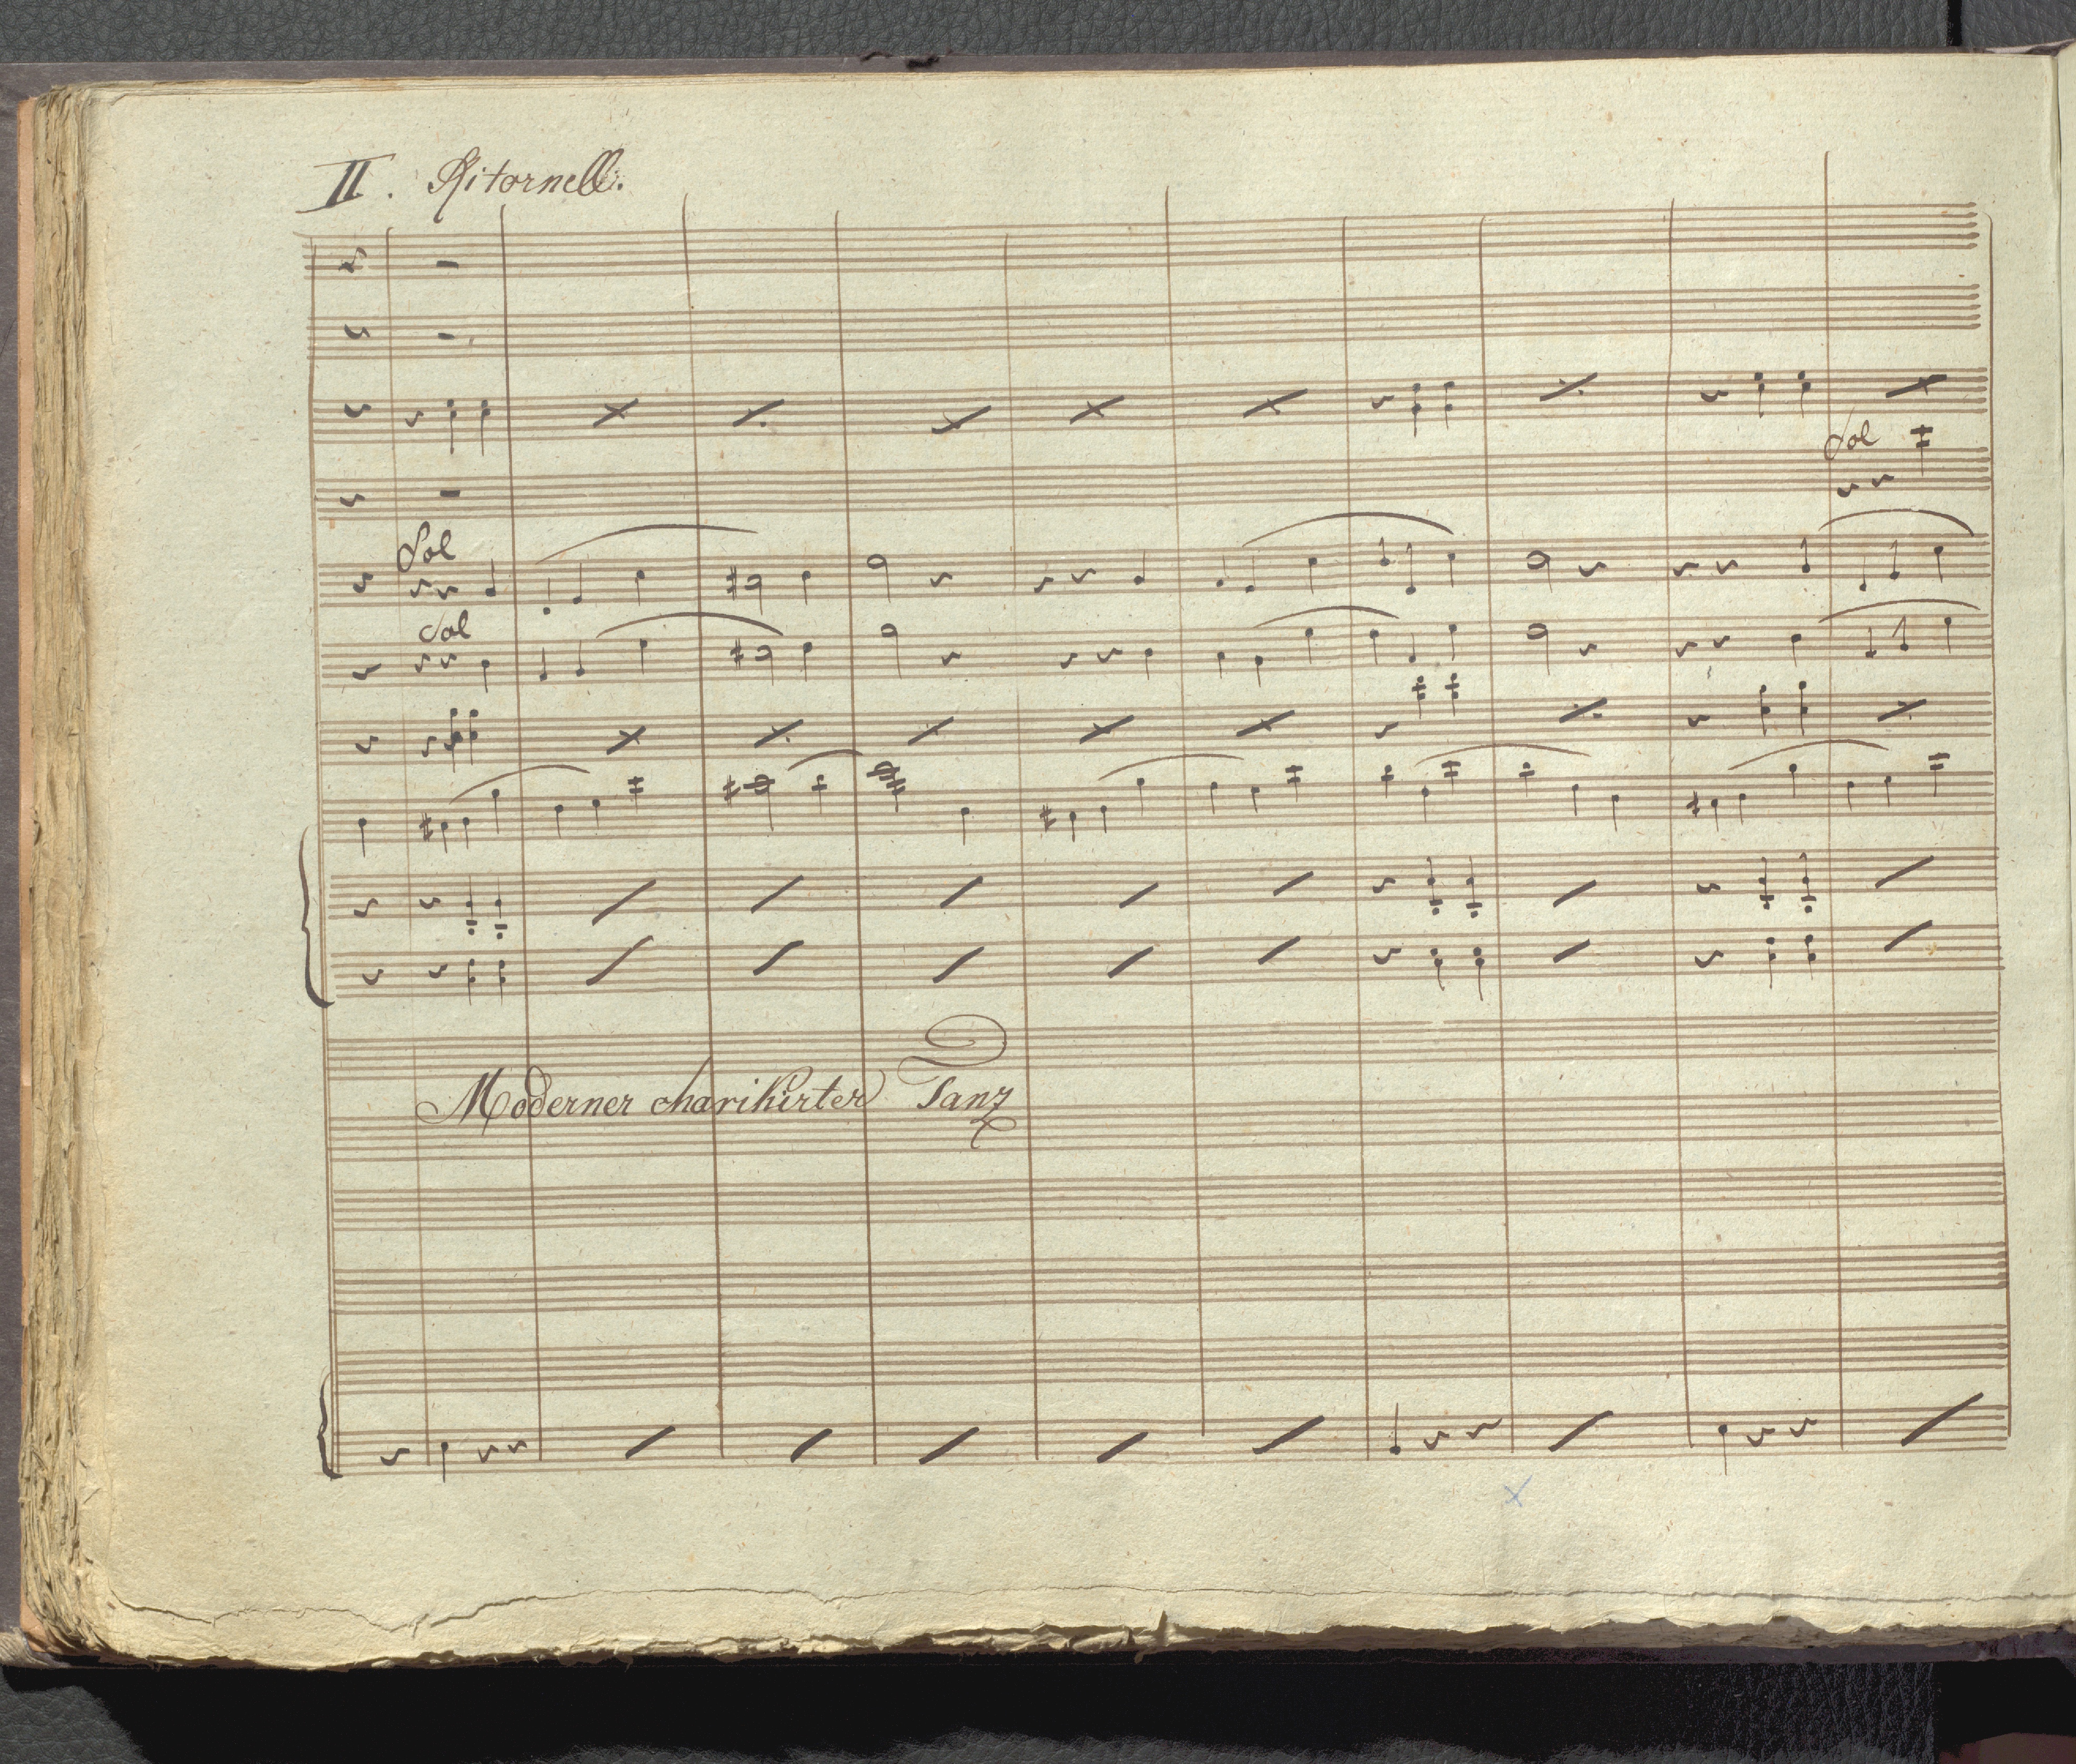 II. Ritornell.
Sol
Sol
Sol
Moderner charikirter Tanz